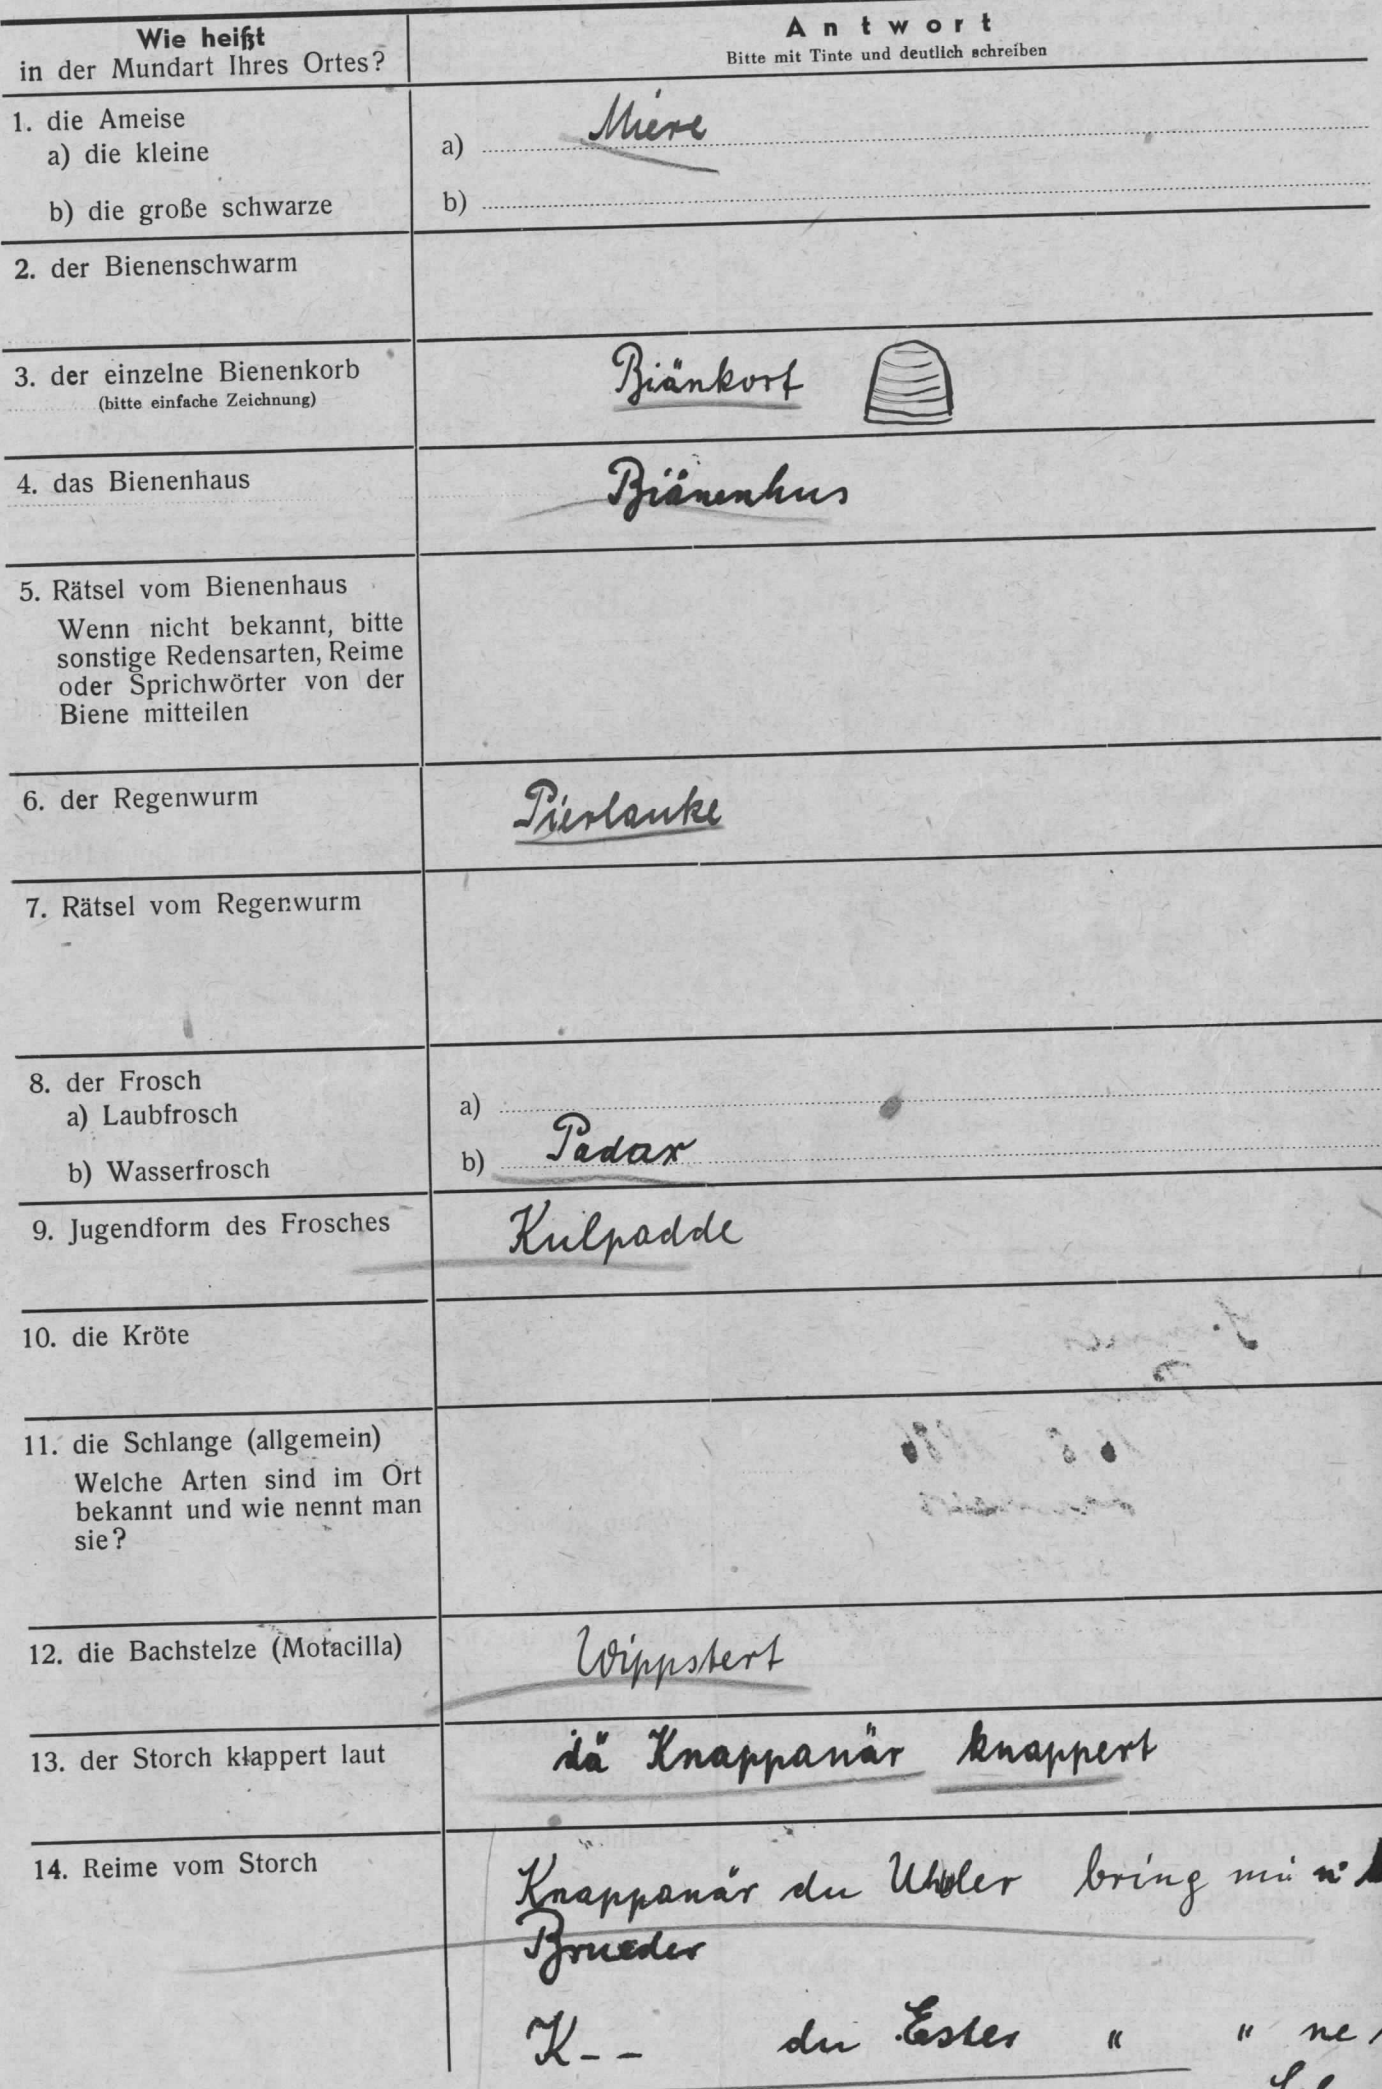 Wie heißt
in der Mundart Ihres Ortes?
Antwort
Bitte mit Tinte und deutlich schreiben
1. die Ameise
a) die kleine
a) Miere
b) die große schwarze
b)
2. der Bienenschwarm
3. der einzelne Bienenkorb
(bitte einfache Zeichnung)
Biänkorf
4. das Bienenhaus
Biänenhus
5. Rätsel vom Bienenhaus
Wenn nicht bekannt, bitte
sonstige Redensarten, Reime
oder Sprichwörter von der
Biene mitteilen
6. der Regenwurm
Pierlauke
7. Rätsel vom Regenwurm
8. der Frosch
a) Laubfrosch
a)
b) Wasserfrosch
b) Padax
9. Jugendform des Frosches
Kulpadde
10. die Kröte
11. die Schlange (allgemein)
Welche Arten sind im Ort
bekannt und wie nennt man
sie?
12. die Bachstelze (Motacilla)
Wippstert
13. der Storch klappert laut
dä Knappanär knappert
14. Reime vom Storch
Knappanär du bring mi n'
Brueder
K-- du Ester " " ne